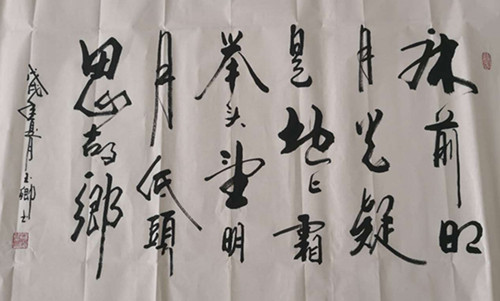 床前明
月光疑
是地上霜
举头望明
月低頭
思故鄉
夏月